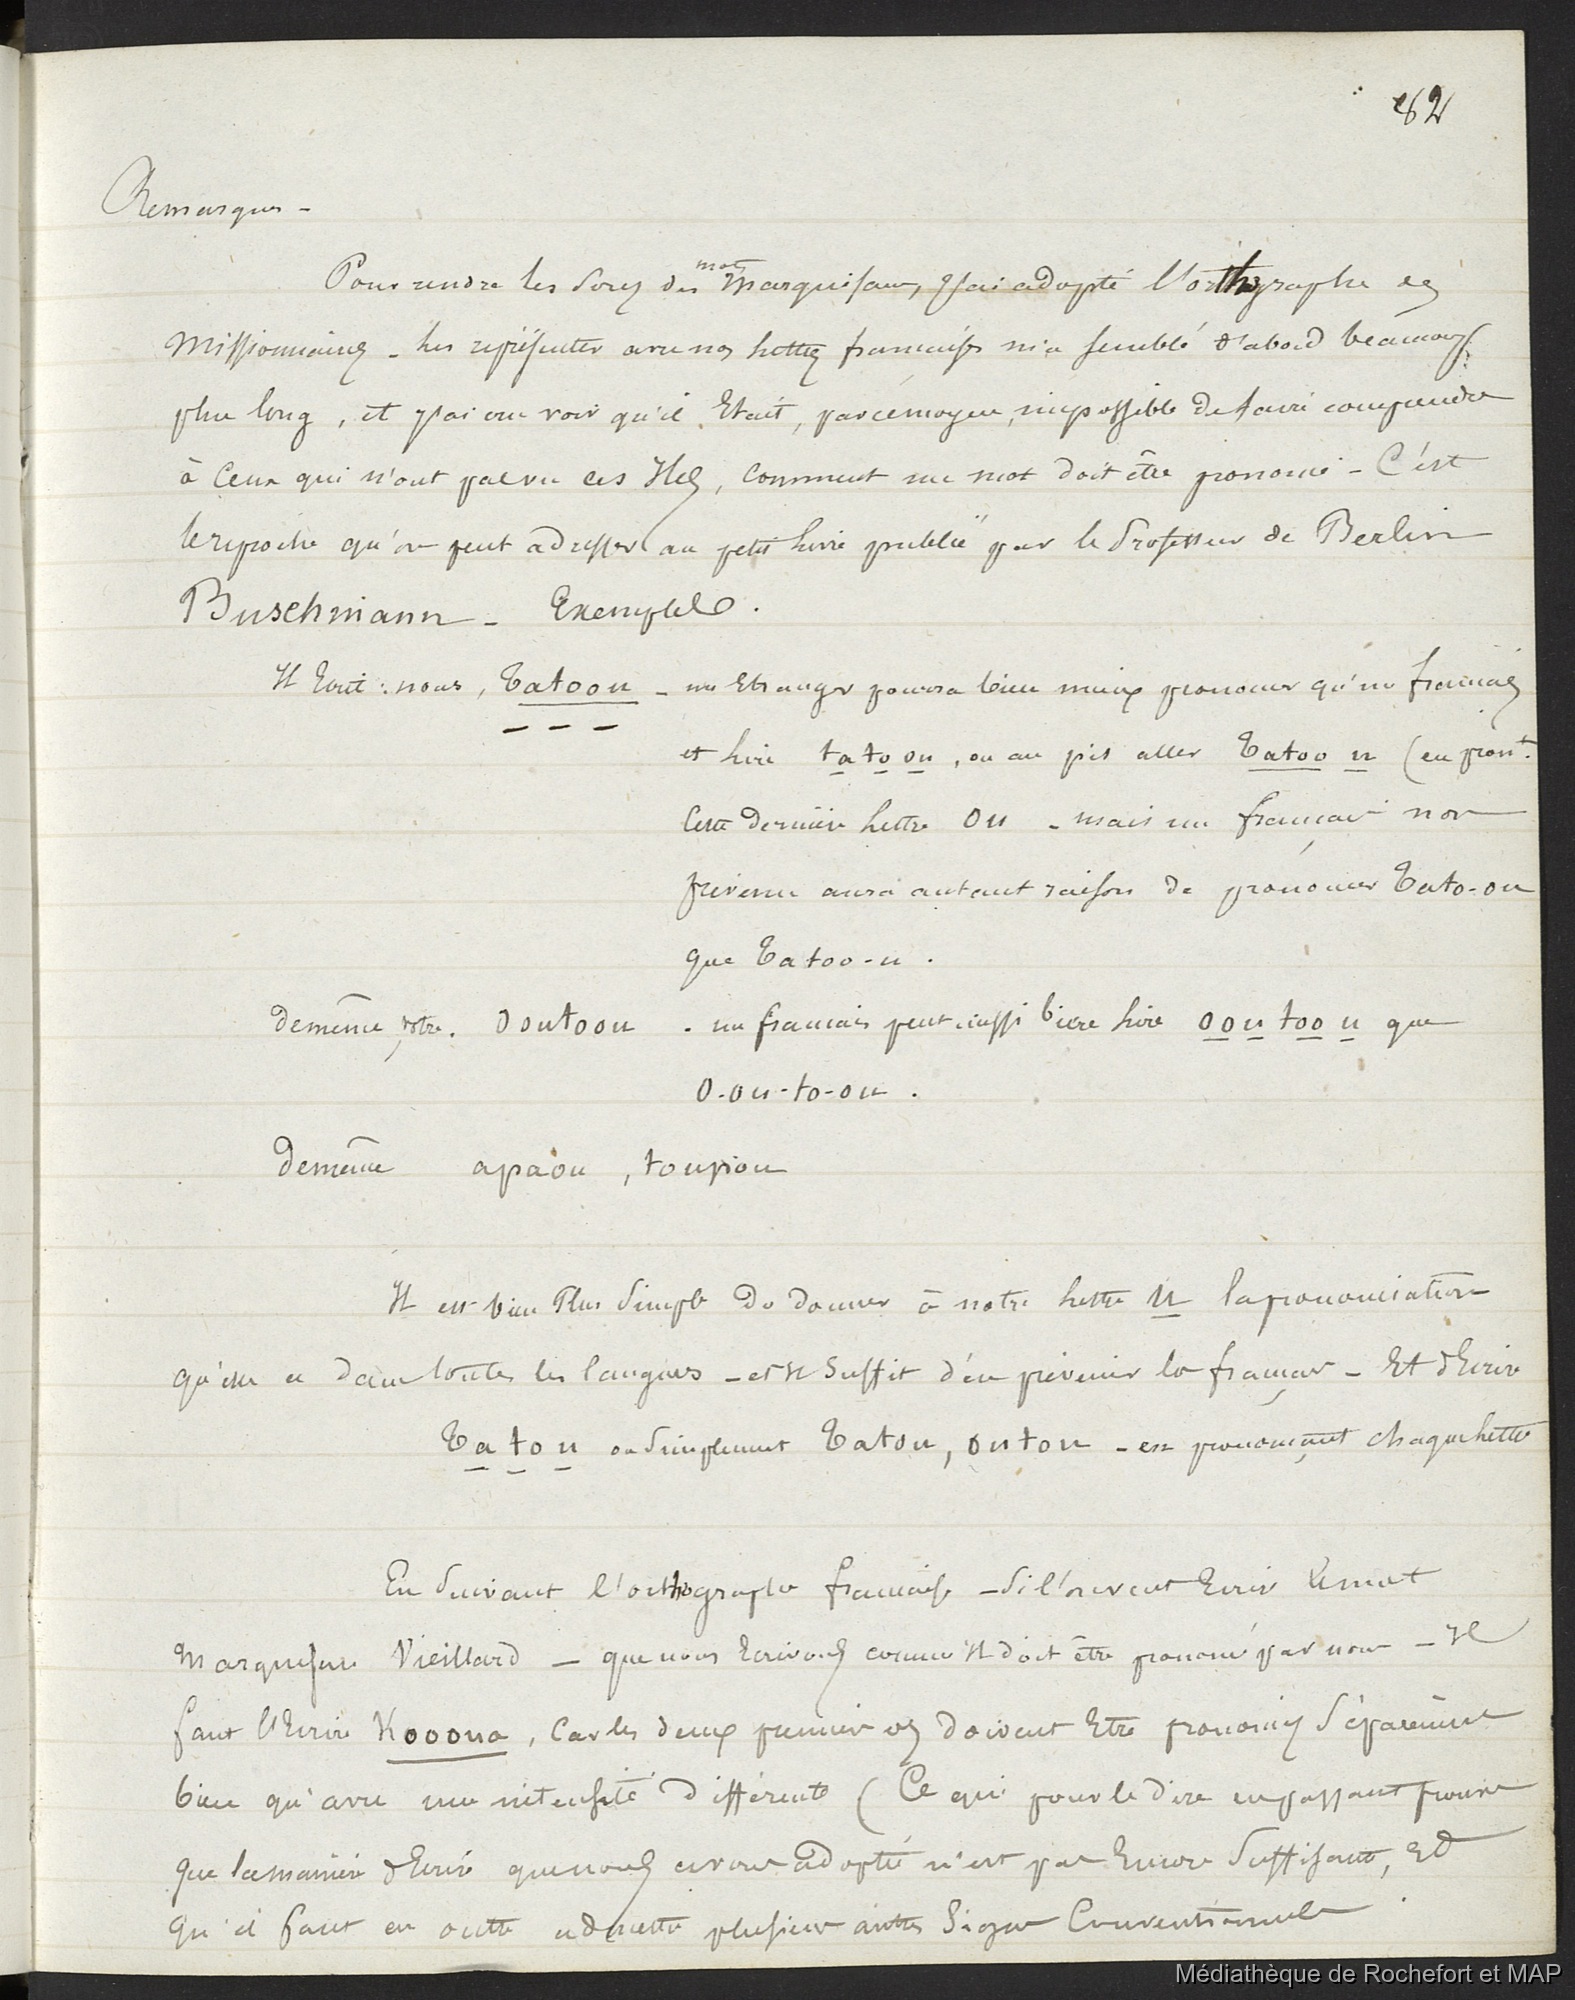 82
Remarques -
mots
Pour rendre les sons des Marquisiens, j'ai adopté l'orthographe des
Missionnaires - les représenter avec nos lettres françaises m'a semblé d'abord beaucoup
plus long, et j'ai cru voir qu'il était, par ce moyen, impossible de faire comprendre
à ceux qui n'ont pas vu ces Iles, comment un mot doit être prononcé - C'est
le reproche qu'on peut adresser au petit livre publié par le Professeur de Berlin
Buschmann - Exemples.
Il écrit : nous, Tatoou - un étranger pourra bien mieux prononcer qu'un français
et lire tatoou, ou au pis aller Tatoo u (en pront.
cette dernière lettre ou - mais un français non
prévenu aura autant raison de prononcer Tato-ou
que Tatoo-u.
de même, votre. Ooutoou . un français peut aussi bien lire oou too u que
O-ou-to-ou.
de même apaou, toupiou
Il est bien plus simple de donner à notre lettre u la prononciation
qu'elle a dans toutes les langues - et il suffit d'en prévenir les français - Et d'écrire
Tatou ou simplement Tatou, outou - en prononçant chaque lettre
En suivant l'orthographe française - si l'on veut écrire le mot
Marquisien Vieillard - que nous écrivons comme il doit être prononcé par nous - Il
faut l'écrire Kooouа, car les deux premiers o doivent être prononcés séparément
bien qu'avec une intensité différente (Ce qui pour le dire en passant prouve
que la manière d'écrire que nous avons adoptée n'est pas encore suffisante, et
qu'il faut en outre admettre plusieurs autres signes conventionnels
Médiathèque de Rochefort et MAP